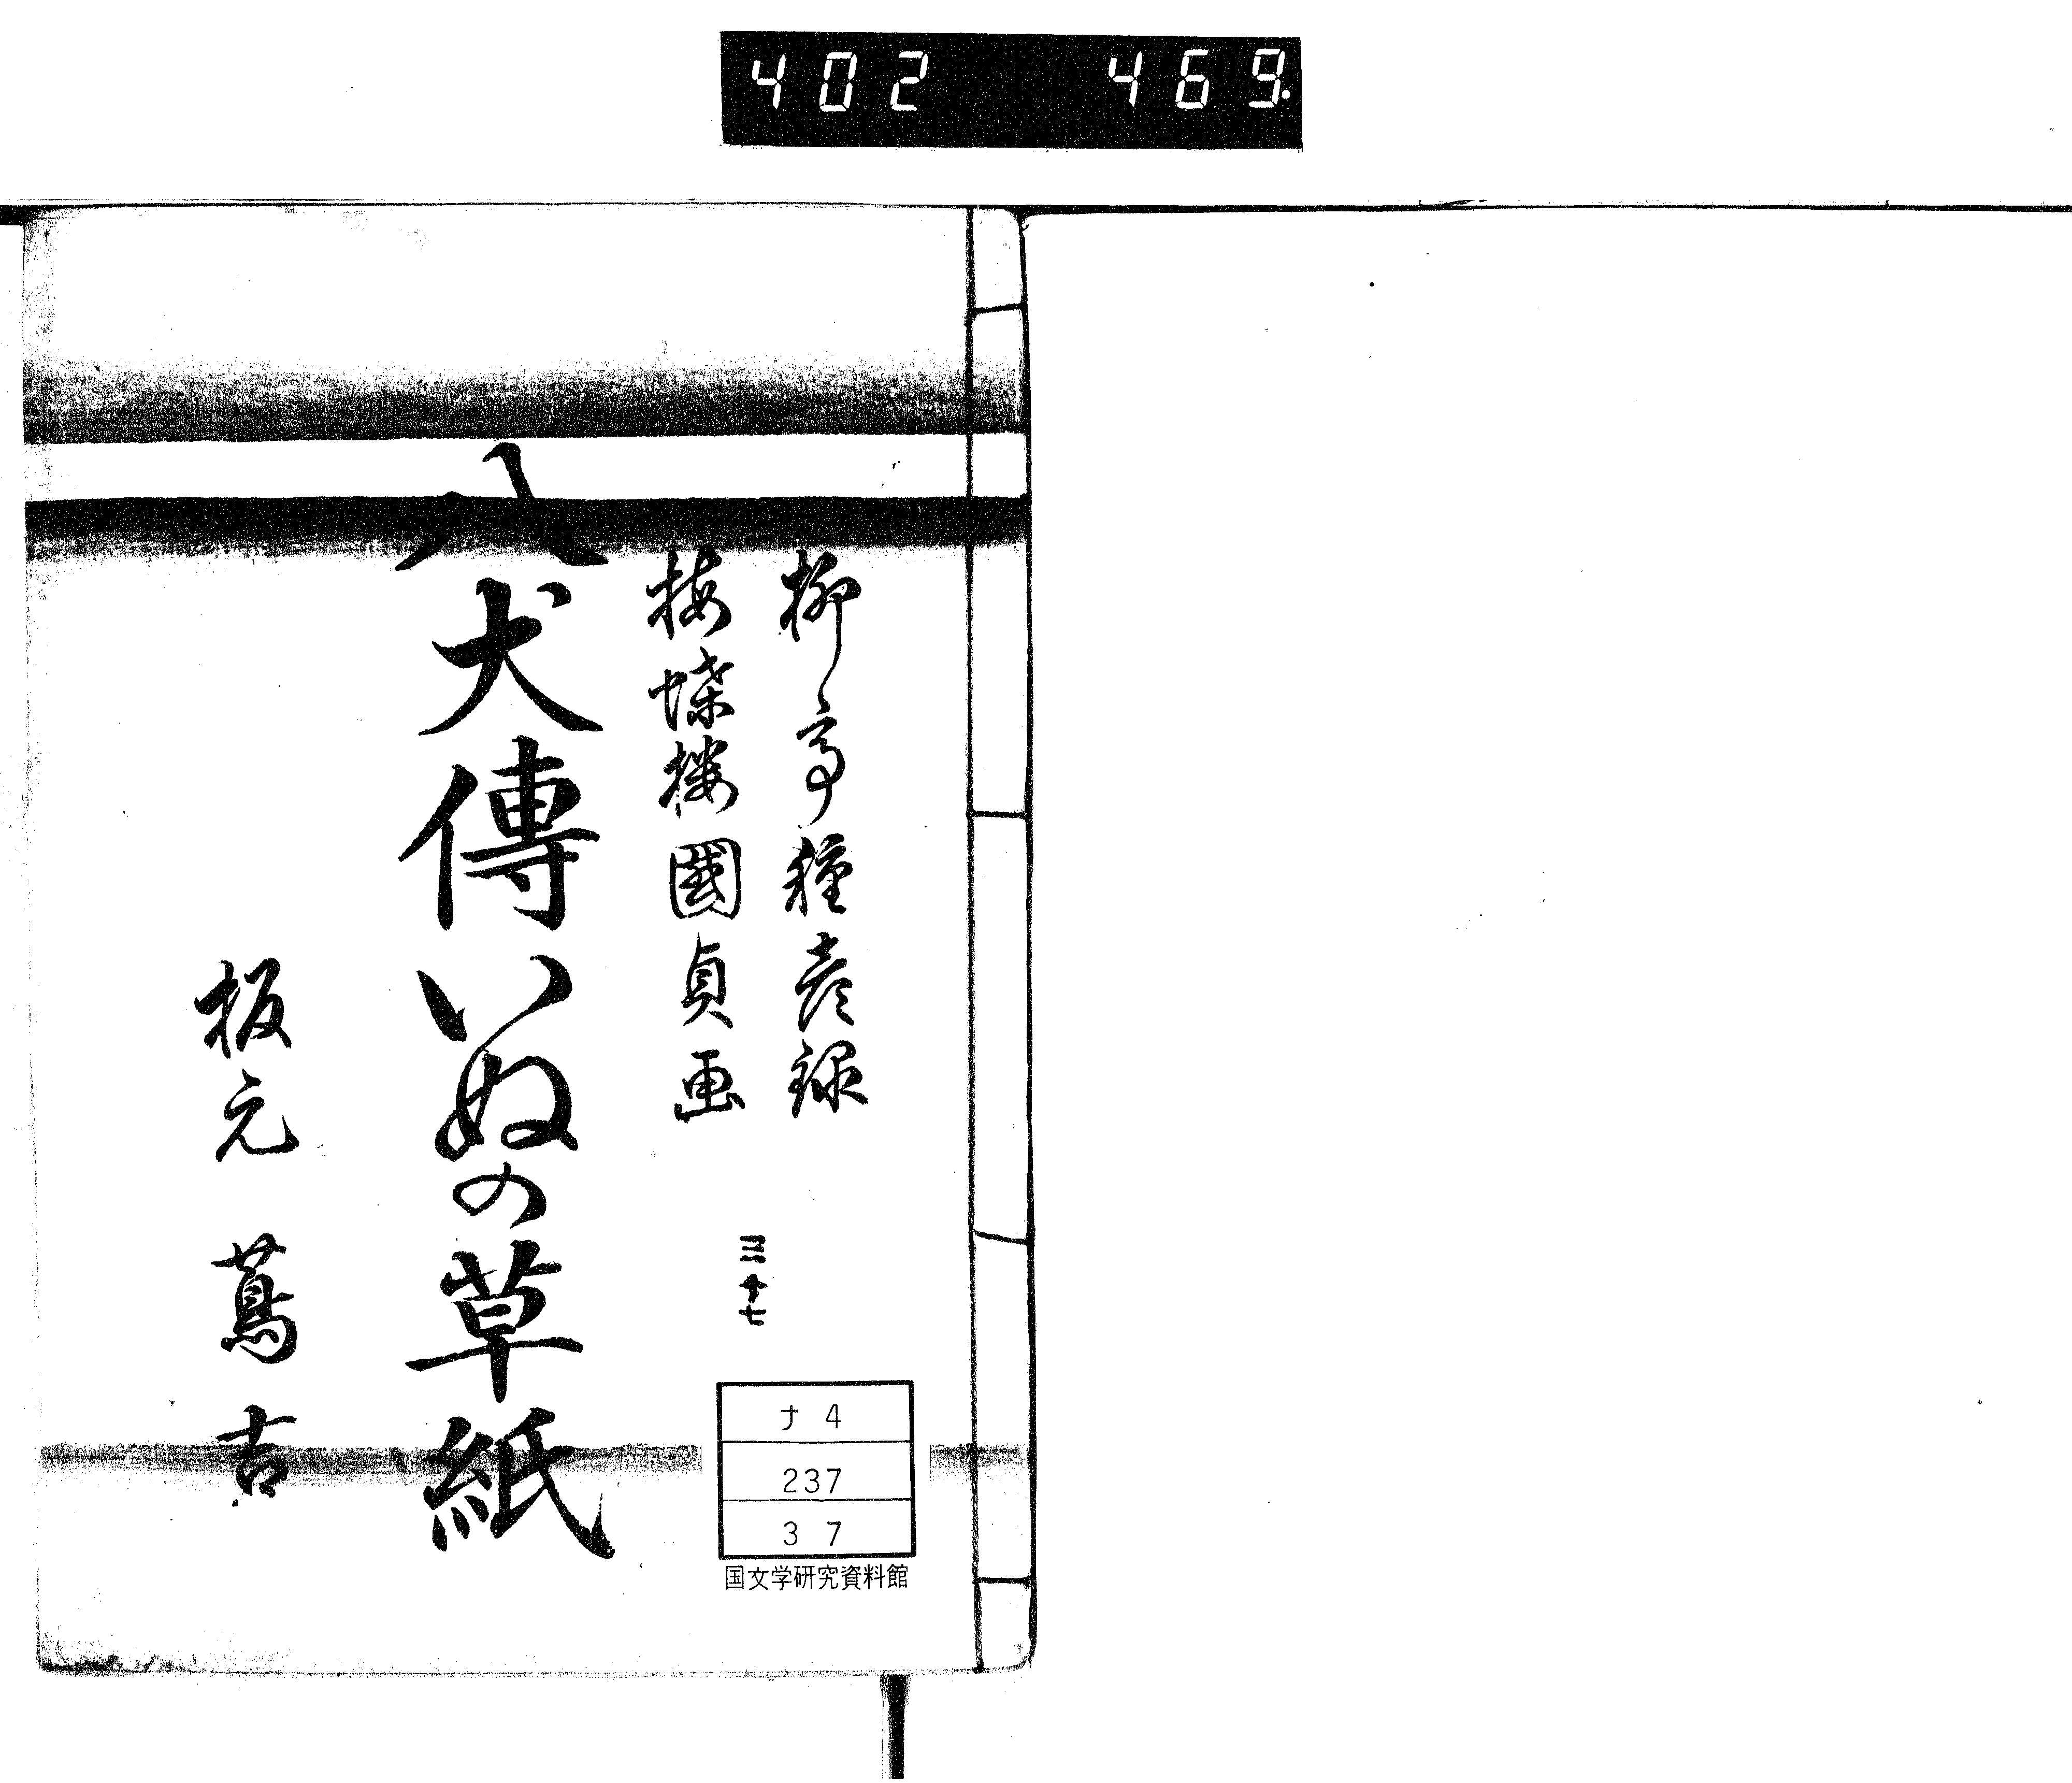 402 469.
柳亭種彦録
梅蝶楼國貞画
三十七
八犬傳いぬの草紙
板元 蔦吉
ナ 4
237
3 7
国文学研究資料館